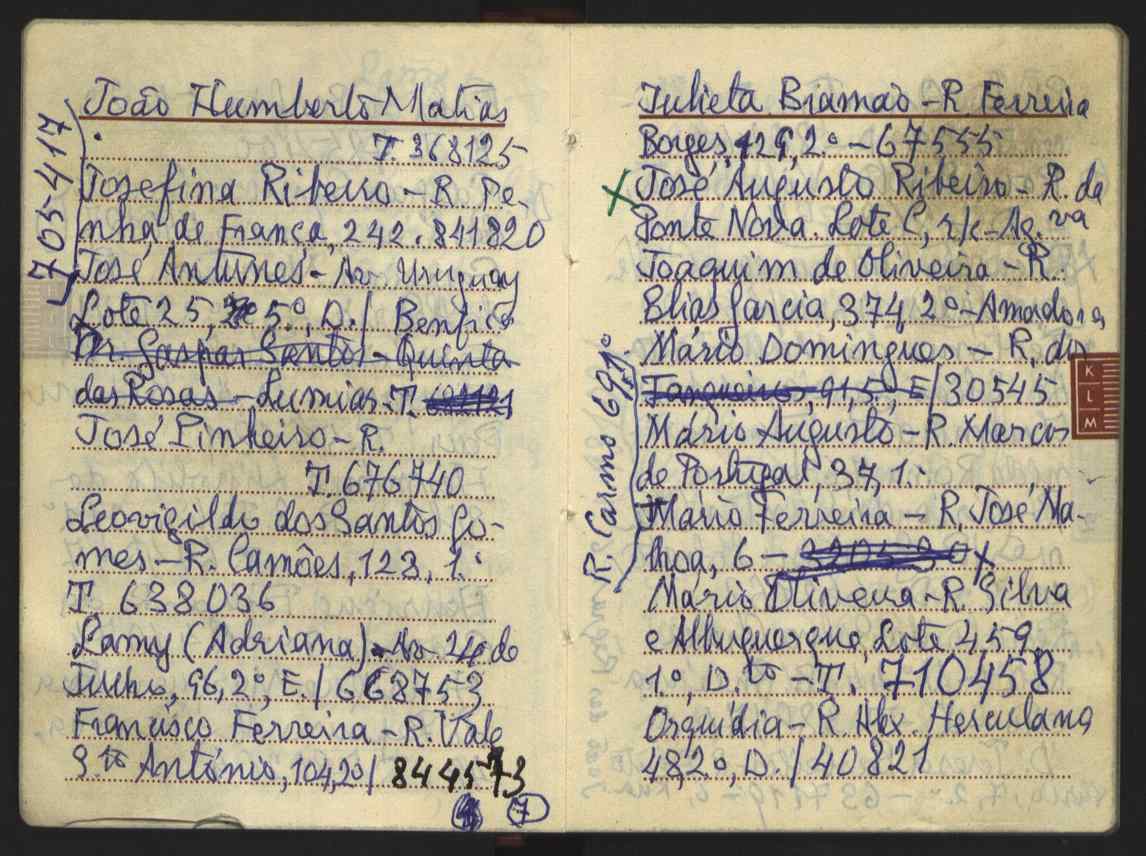 João Humberto Matias
T. 368125
705417
Josefina Ribeiro - R. Pe-
nha de França, 242. 841820
José Antunes - Av. Uruguay
Lote 25, 5.º, D. / Benfica
Dr. Gaspar Santos - Quinta
das Rosas - Lumiar - T.
José Pinheiro - R.
T. 676740
Leovigildo dos Santos Go-
mes - R. Camões, 123, 1.º
T. 638036
Lamy (Adriana) - Av. 24 de
Julho, 96, 2.º, E. / 668753
Francisco Ferreira - R. Vale
S.to António, 104, 2º / 844573
7
Julieta Biamão - R. Ferreira
Borges, 129, 2.º - 67555
X José Augusto Ribeiro - R. da
Ponte Nova. Lote C, r/c - Ag.va
Joaquim de Oliveira - R.
Elias Garcia, 374, 2º - Amadora
Mário Domingues - R. dos
91, 5.º, E / 30545
R. Carmo / 69, 1º
Mário Augusto - R. Marcos
de Portugal, 37, 1.º
Mário Ferreira - R. José Ma-
lhoa, 6 - x
Mário Oliveira - R. Silva
e Albuquerque, Lote 459,
1.º, D.to - T. 710458
Orquídia - R. Alex. Herculano
48, 2º, D. / 40821
K
L
M